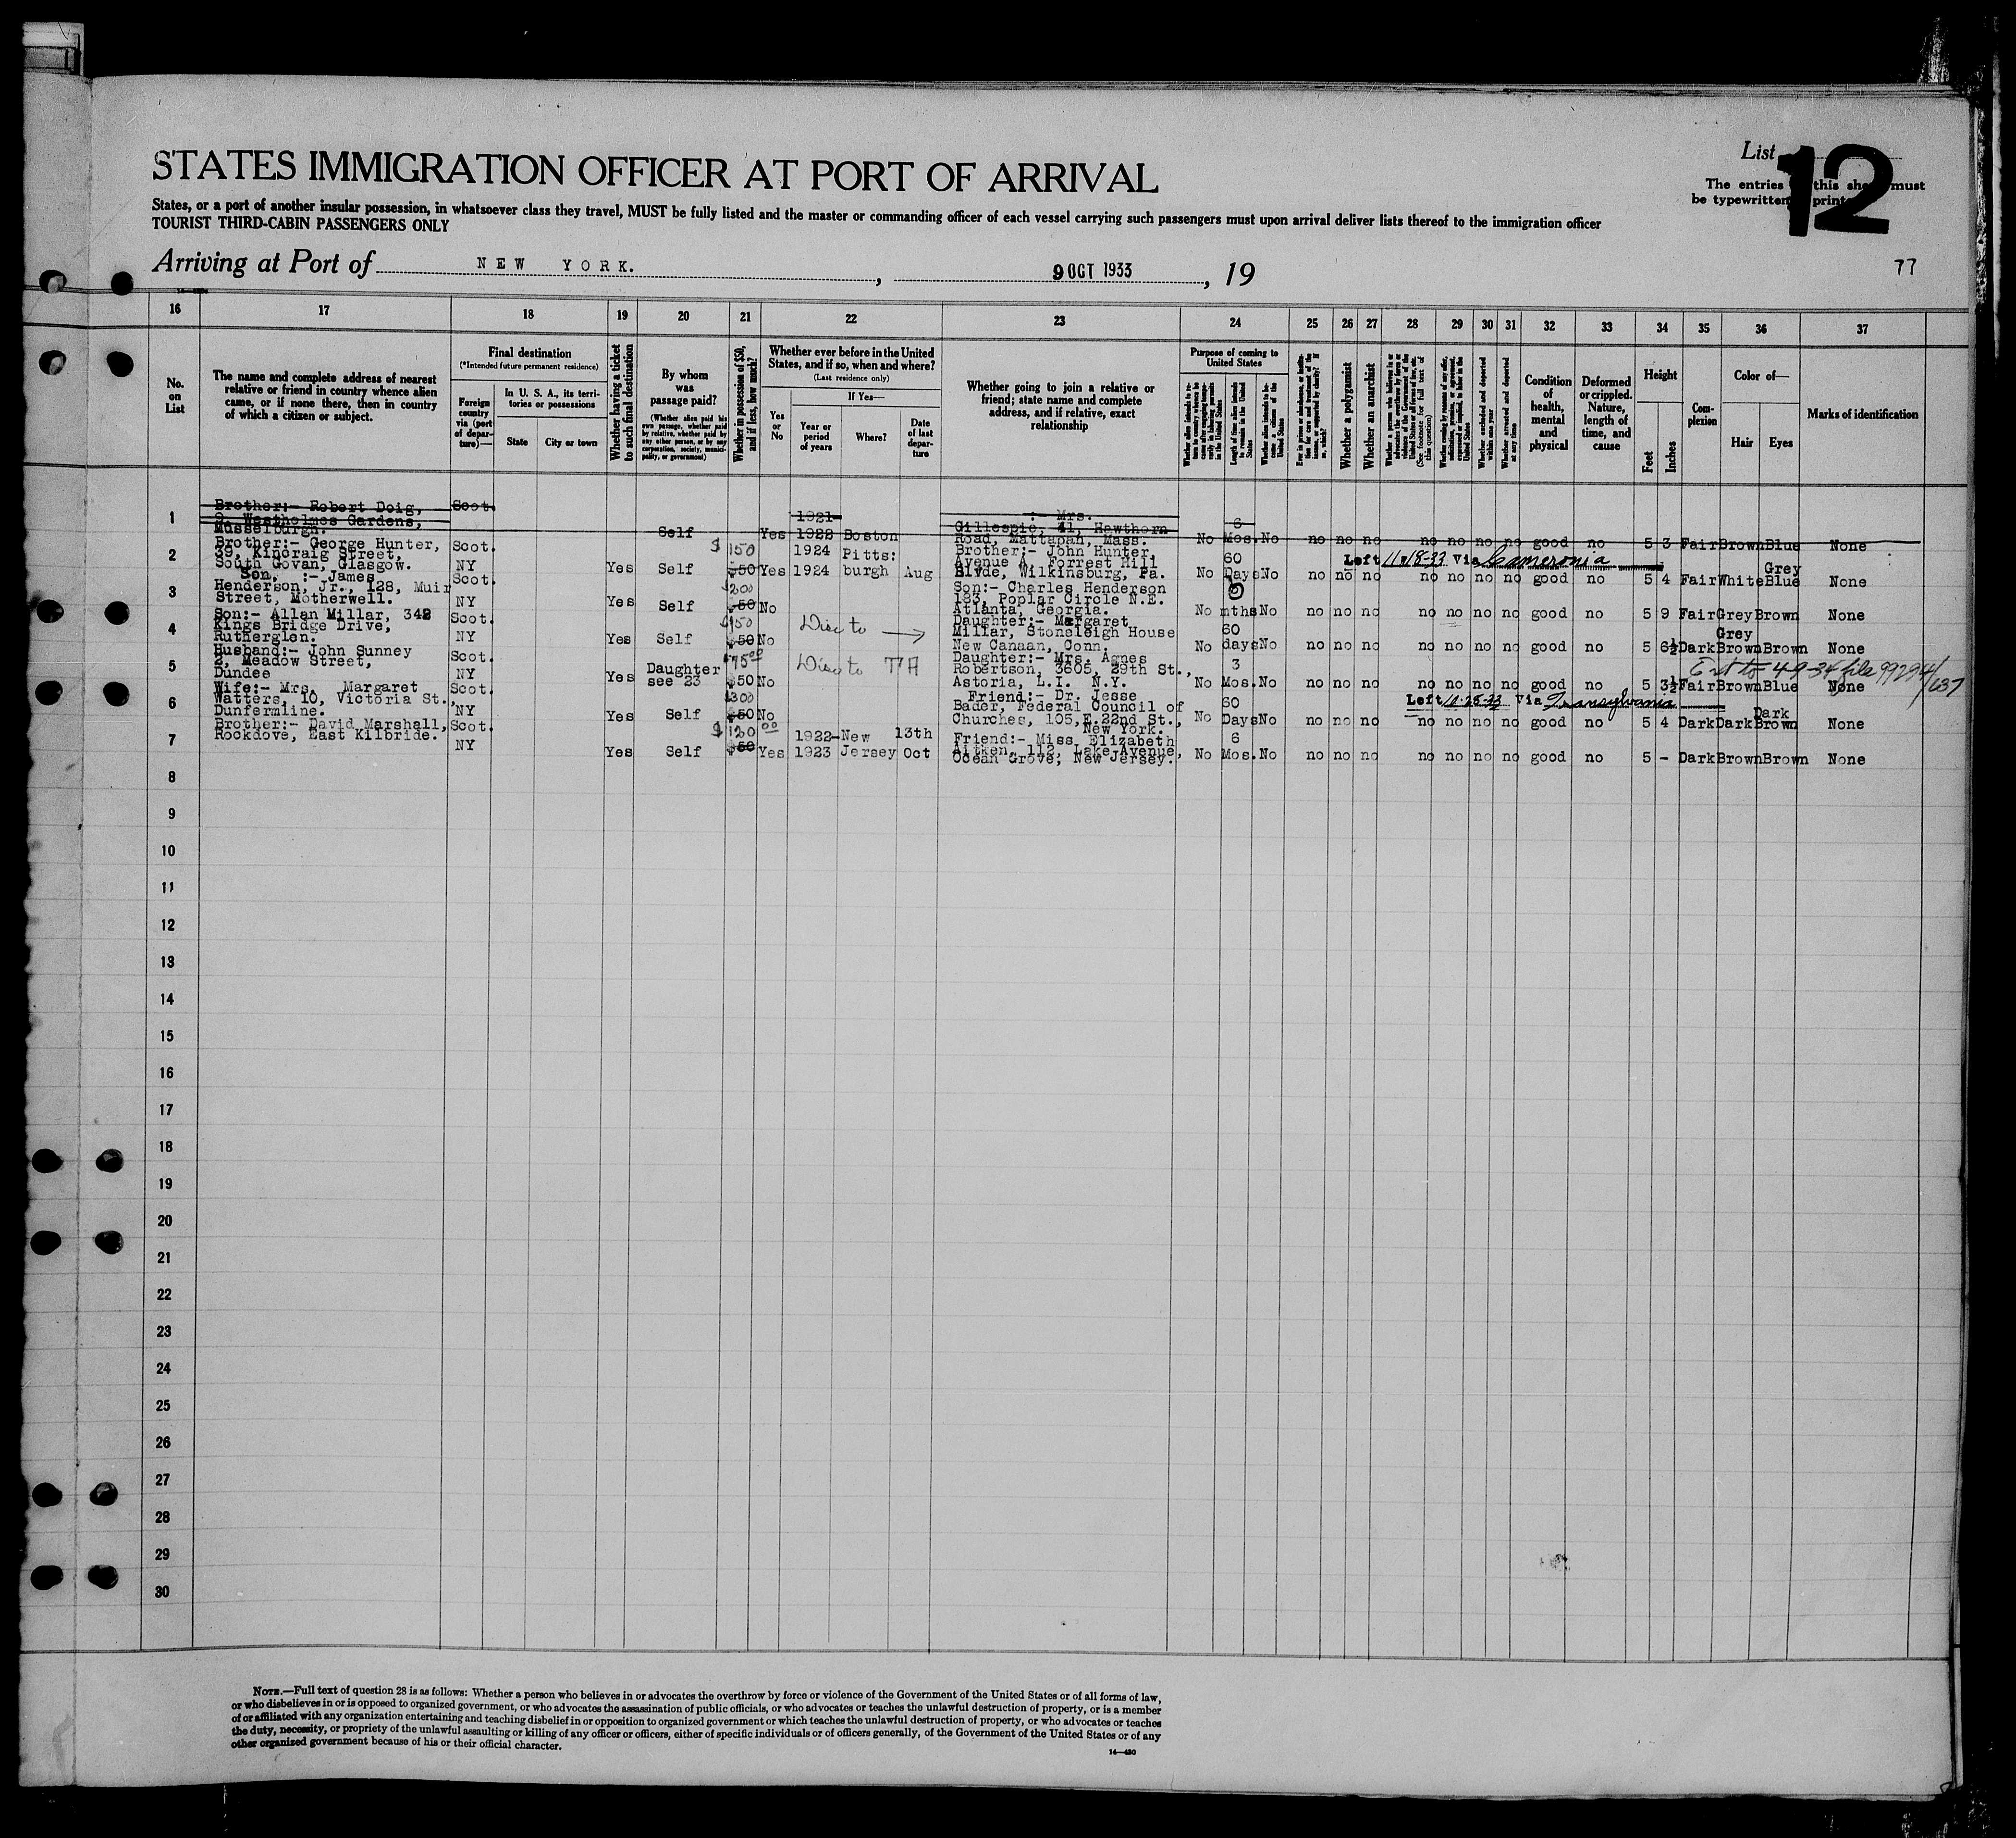 STATES IMMIGRATION OFFICER AT PORT OF ARRIVAL
List 12
The entries this sheet must
be typewritten printed
States, or a port of another insular possession, in whatsoever class they travel, MUST be fully listed and the master or commanding officer of each vessel carrying such passengers must upon arrival deliver lists thereof to the immigration officer
TOURIST THIRD-CABIN PASSENGERS ONLY
Arriving at Port of NEW YORK. , 9 OCT 1933 , 19
77
16 17 18 19 20 21 22 23 24 25 26 27 28 29 30 31 32 33 34 35 36 37
No. on List
The name and complete address of nearest
relative or friend in country whence alien
came, or if none there, then in country
of which a citizen or subject.
Final destination
(*Intended future permanent residence)
Foreign country via (port of departure)—
In U. S. A., its territories or possessions
State City or town
Whether having a ticket to such final destination
By whom was passage paid?
(Whether alien paid his own passage, whether paid by relative, whether paid by any other person, or by any corporation, society, municipality, or government)
Whether in possession of $50, and if less, how much?
Whether ever before in the United
States, and if so, when and where?
(Last residence only)
Yes or No
If Yes—
Year or period of years
Where?
Date of last departure
Whether going to join a relative or
friend; state name and complete
address, and if relative, exact
relationship
Purpose of coming to
United States
Length of time alien intends to remain in the United States
Whether a polygamist
Whether an anarchist
(See footnote for full text of this question)
Whether arrested and deported within one year
Whether arrested and deported at any time
Condition of health, mental and physical
Deformed or crippled. Nature, length of time, and cause
Height
Feet Inches
Complexion
Color of—
Hair Eyes
Marks of identification
1 Brother:- Robert Doig, Scot.
9, Westholmes Gardens, 1921- :- Mrs. 6
Musselburgh. Self Yes 1922 Boston Gillespie, 41, Hawthorn
Road, Mattapan, Mass. No Mos. No no no no no no no no good no 5 3 Fair Brown Blue None
2 Brother:- George Hunter, Scot. $150 1924 Pitts: Brother:- John Hunter, 60 Left 11/18-33 Via Cameronia
39, Kincraig Street, Avenue A, Forrest Hill Grey
South Govan, Glasgow. NY Yes Self $50 Yes 1924 burgh Aug Blvde, Wilkinsburg, Pa. No Days No no no no no no no no good no 5 4 Fair White Blue None
3 Son, :- James Scot. $200 Son:- Charles Henderson 6
Henderson, Jr., 128, Muir 183, Poplar Circle N.E.
Street, Motherwell. NY Yes Self $50 No Atlanta, Georgia. No mths No no no no no no no no good no 5 9 Fair Grey Brown None
4 Son:- Allan Millar, 342 Scot. $150 Disc to Daughter:- Margaret 60
Kings Bridge Drive, Millar, Stoneleigh House Grey
Rutherglen. NY Yes Self $50 No New Canaan, Conn. No days No no no no no no no no good no 5 6½ Dark Brown Brown None
5 Husband:- John Sunney Scot. $75.00 Disc to Daughter:- Mrs. Agnes 3 Ext to 4-9-34 file 99294/637
2, Meadow Street, Daughter Robertson, 3605, 29th St.,
Dundee NY Yes see 23 $50 No Astoria, L.I. N.Y. No Mos. No no no no no no no no good no 5 3½ Fair Brown Blue None
6 Wife:- Mrs. Margaret Scot. $300 Friend:- Dr. Jesse 60 Left 10-28-33 Via Transylvania
Watters, 10, Victoria St., Bader, Federal Council of Dark
Dunfermline. NY Yes Self $50 No Churches, 105, E.22nd St., New York. No Days No no no no no no no no good no 5 4 Dark Dark Brown None
7 Brother:- David Marshall, Scot. $120.00 1922- New 13th Friend:- Miss Elizabeth 6
Rockdove, East Kilbride. NY Yes Self $50 Yes 1923 Jersey Oct Aitken, 112, Lake Avenue,
Ocean Grove, New Jersey. No Mos. No no no no no no no no good no 5 - Dark Brown Brown None
8
9
10
11
12
13
14
15
16
17
18
19
20
21
22
23
24
25
26
27
28
29
30
NOTE.—Full text of question 28 is as follows: Whether a person who believes in or advocates the overthrow by force or violence of the Government of the United States or of all forms of law,
or who disbelieves in or is opposed to organized government, or who advocates the assassination of public officials, or who advocates or teaches the unlawful destruction of property, or is a member
of or affiliated with any organization entertaining and teaching disbelief in or opposition to organized government or which teaches the unlawful destruction of property, or who advocates or teaches
the duty, necessity, or propriety of the unlawful assaulting or killing of any officer or officers, either of specific individuals or of officers generally, of the Government of the United States or of any
other organized government because of his or their official character.
14—430